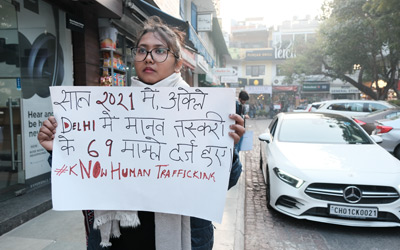 HEAR
सान 2021 में, अकेले
DELHI में मानव तस्करी
के 69 मामले दर्ज हुए
#KNOW HUMAN TRAFFICKING
CH01CK0001